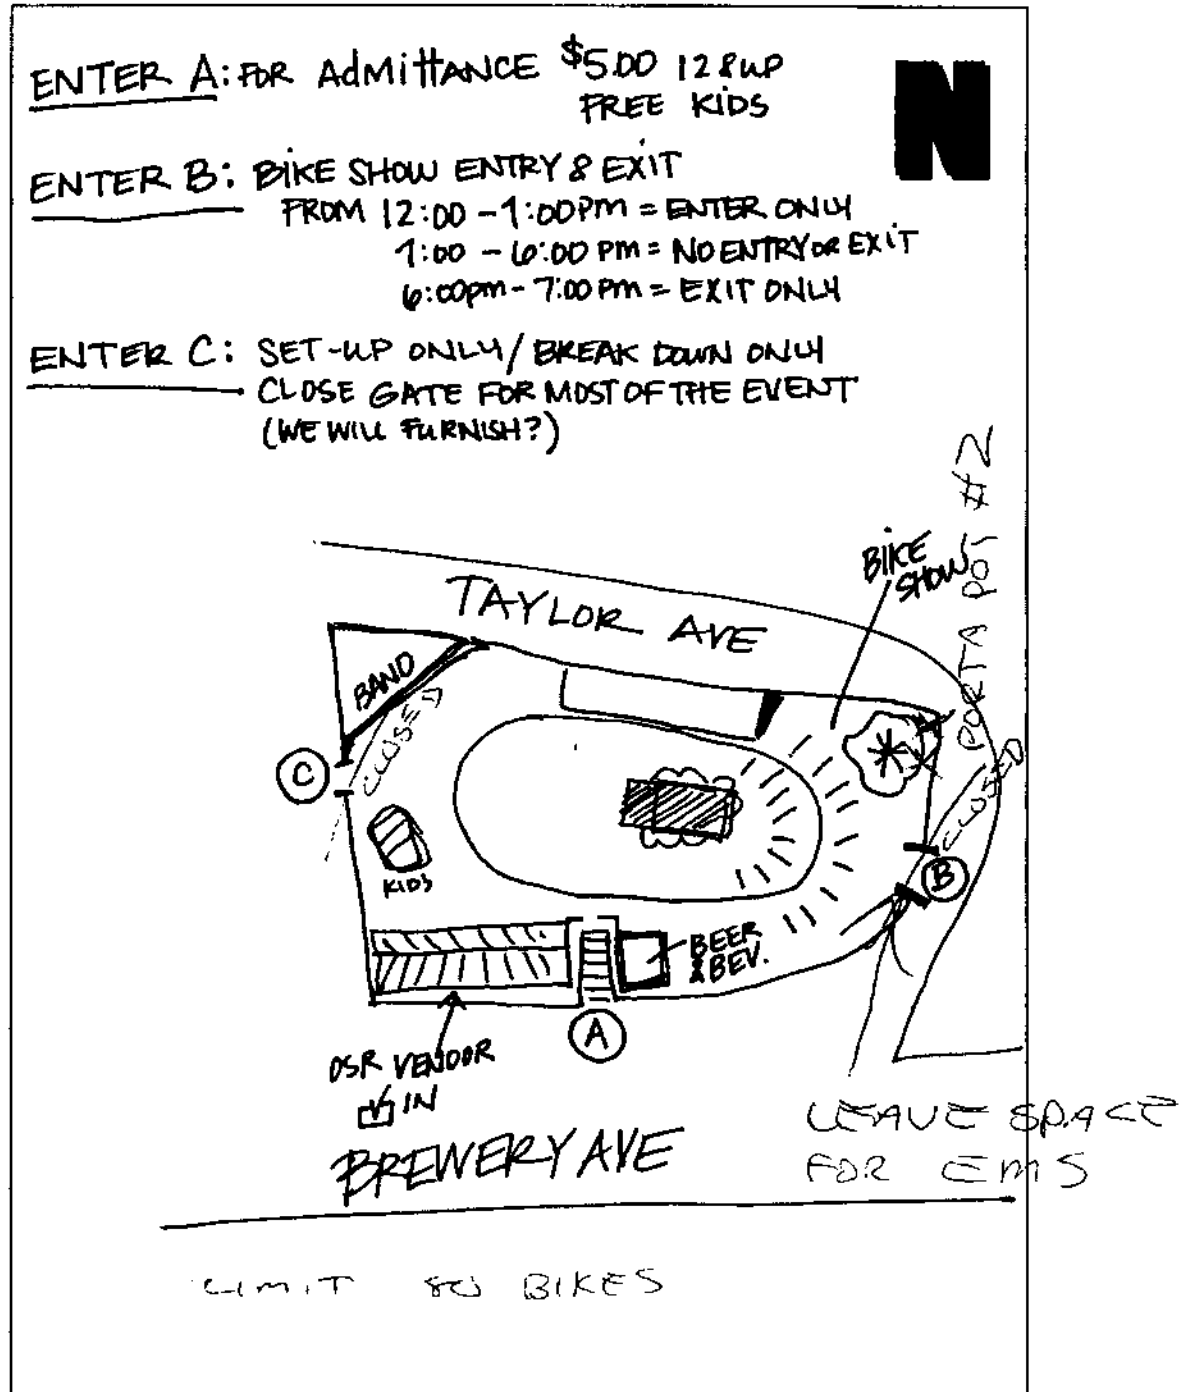 ENTER A: FOR AdMiTTANCE $5.00 12 & UP
FREE KIDS
N
ENTER B: BIKE SHOW ENTRY & EXIT
FROM 12:00 - 1:00PM = ENTER ONLY
1:00 - 6:00 PM = NO ENTRY OR EXIT
6:00pm - 7:00 PM = EXIT ONLY
ENTER C: SET-UP ONLY / BREAK DOWN ONLY
CLOSE GATE FOR MOST OF THE EVENT
(WE WILL FURNISH?)
PORTA POT #2
BIKE
SHOW
TAYLOR AVE
BAND
CLOSED
C
CLOSED
KIDS
B
BEER
& BEV.
A
VENDOR
IN
BREWERY AVE
LEAVE SPACE
FOR EMS
LIMIT 80 BIKES